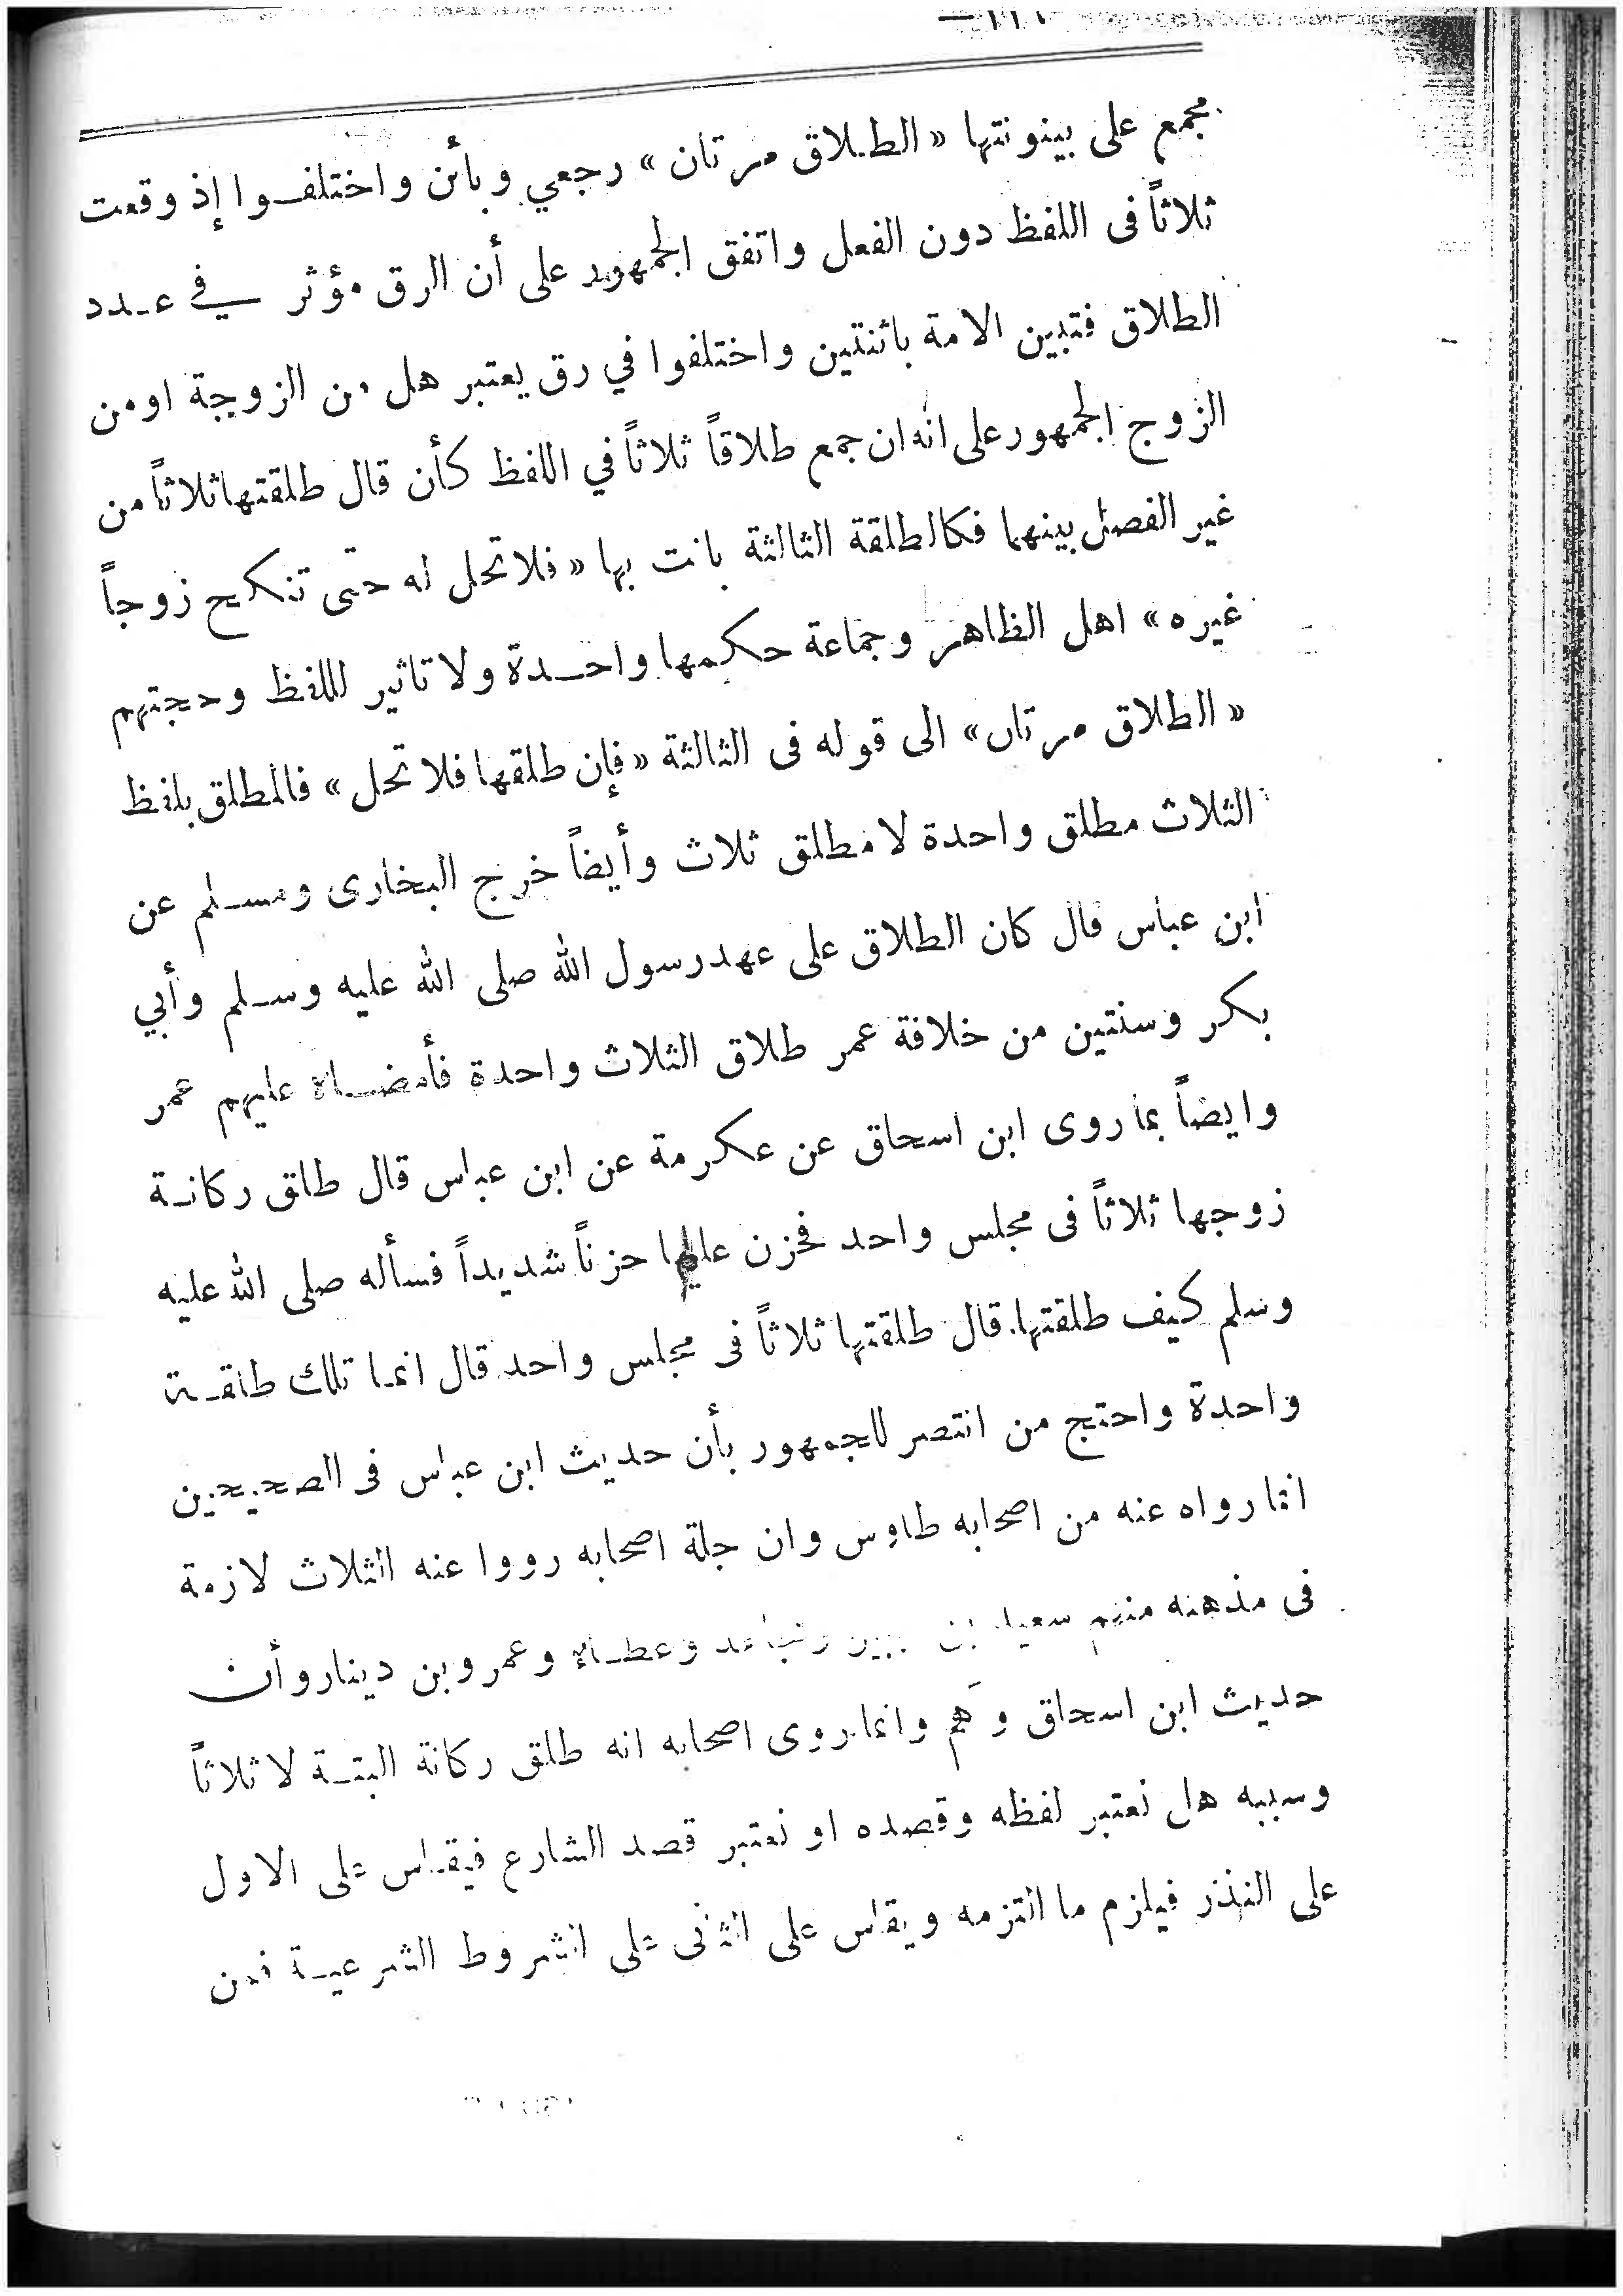 مجمع على بينونتها « الطلاق مرتان » رجعي وبأن واختلفوا إذ وقعت
ثلاثاً فى اللفظ دون الفعل واتفق الجمهور على أن الرق مؤثر في عدد
الطلاق فتبين الامة باثنتين واختلفوا في رق يعتبر هل من الزوجة اومن
الزوج الجمهور على انه ان جمع طلاقاً ثلاثاً في اللفظ كأن قال طلقتها ثلاثاً من
غير الفصل بينهما فكالطلقة الثالثة بانت بها « فلا تحل له حتى تنكح زوجاً
غيره » اهل الظاهر وجماعة حكمها واحدة ولا تاثير للفظ وحجتهم
« الطلاق مرتان » الى قوله فى الثالثة « فإن طلقها فلا تحل » فالمطلق بلفظ
الثلاث مطلق واحدة لا مطلق ثلاث وأيضاً خرج البخارى ومسلم عن
ابن عباس قال كان الطلاق على عهد رسول الله صلى الله عليه وسلم وأبي
بكر وسنتين من خلافة عمر طلاق الثلاث واحدة فأمضاه عليهم عمر
وايضاً بما روى ابن اسحاق عن عكرمة عن ابن عباس قال طلق ركانة
زوجها ثلاثاً فى مجلس واحد فحزن عليها حزناً شديداً فسأله صلى الله عليه
وسلم كيف طلقتها قال طلقتها ثلاثاً فى مجلس واحد قال انما تلك طلقة
واحدة واحتج من انتصر للجمهور بأن حديث ابن عباس فى الصحيحين
انما رواه عنه من اصحابه طاوس وان جلة اصحابه رووا عنه الثلاث لازمة
فى مذهبه منهم سعيد بن جبير ومجاهد وعطاء وعمرو بن دينار وأن
حديث ابن اسحاق وهم وانما روى اصحابه انه طلق ركانة البتة لا ثلاثاً
وسببه هل نعتبر لفظه وقصده او نعتبر قصد الشارع فيقاس على الاول
على النذر فيلزم ما التزمه ويقاس على الثانى على الشروط الشرعية فمن